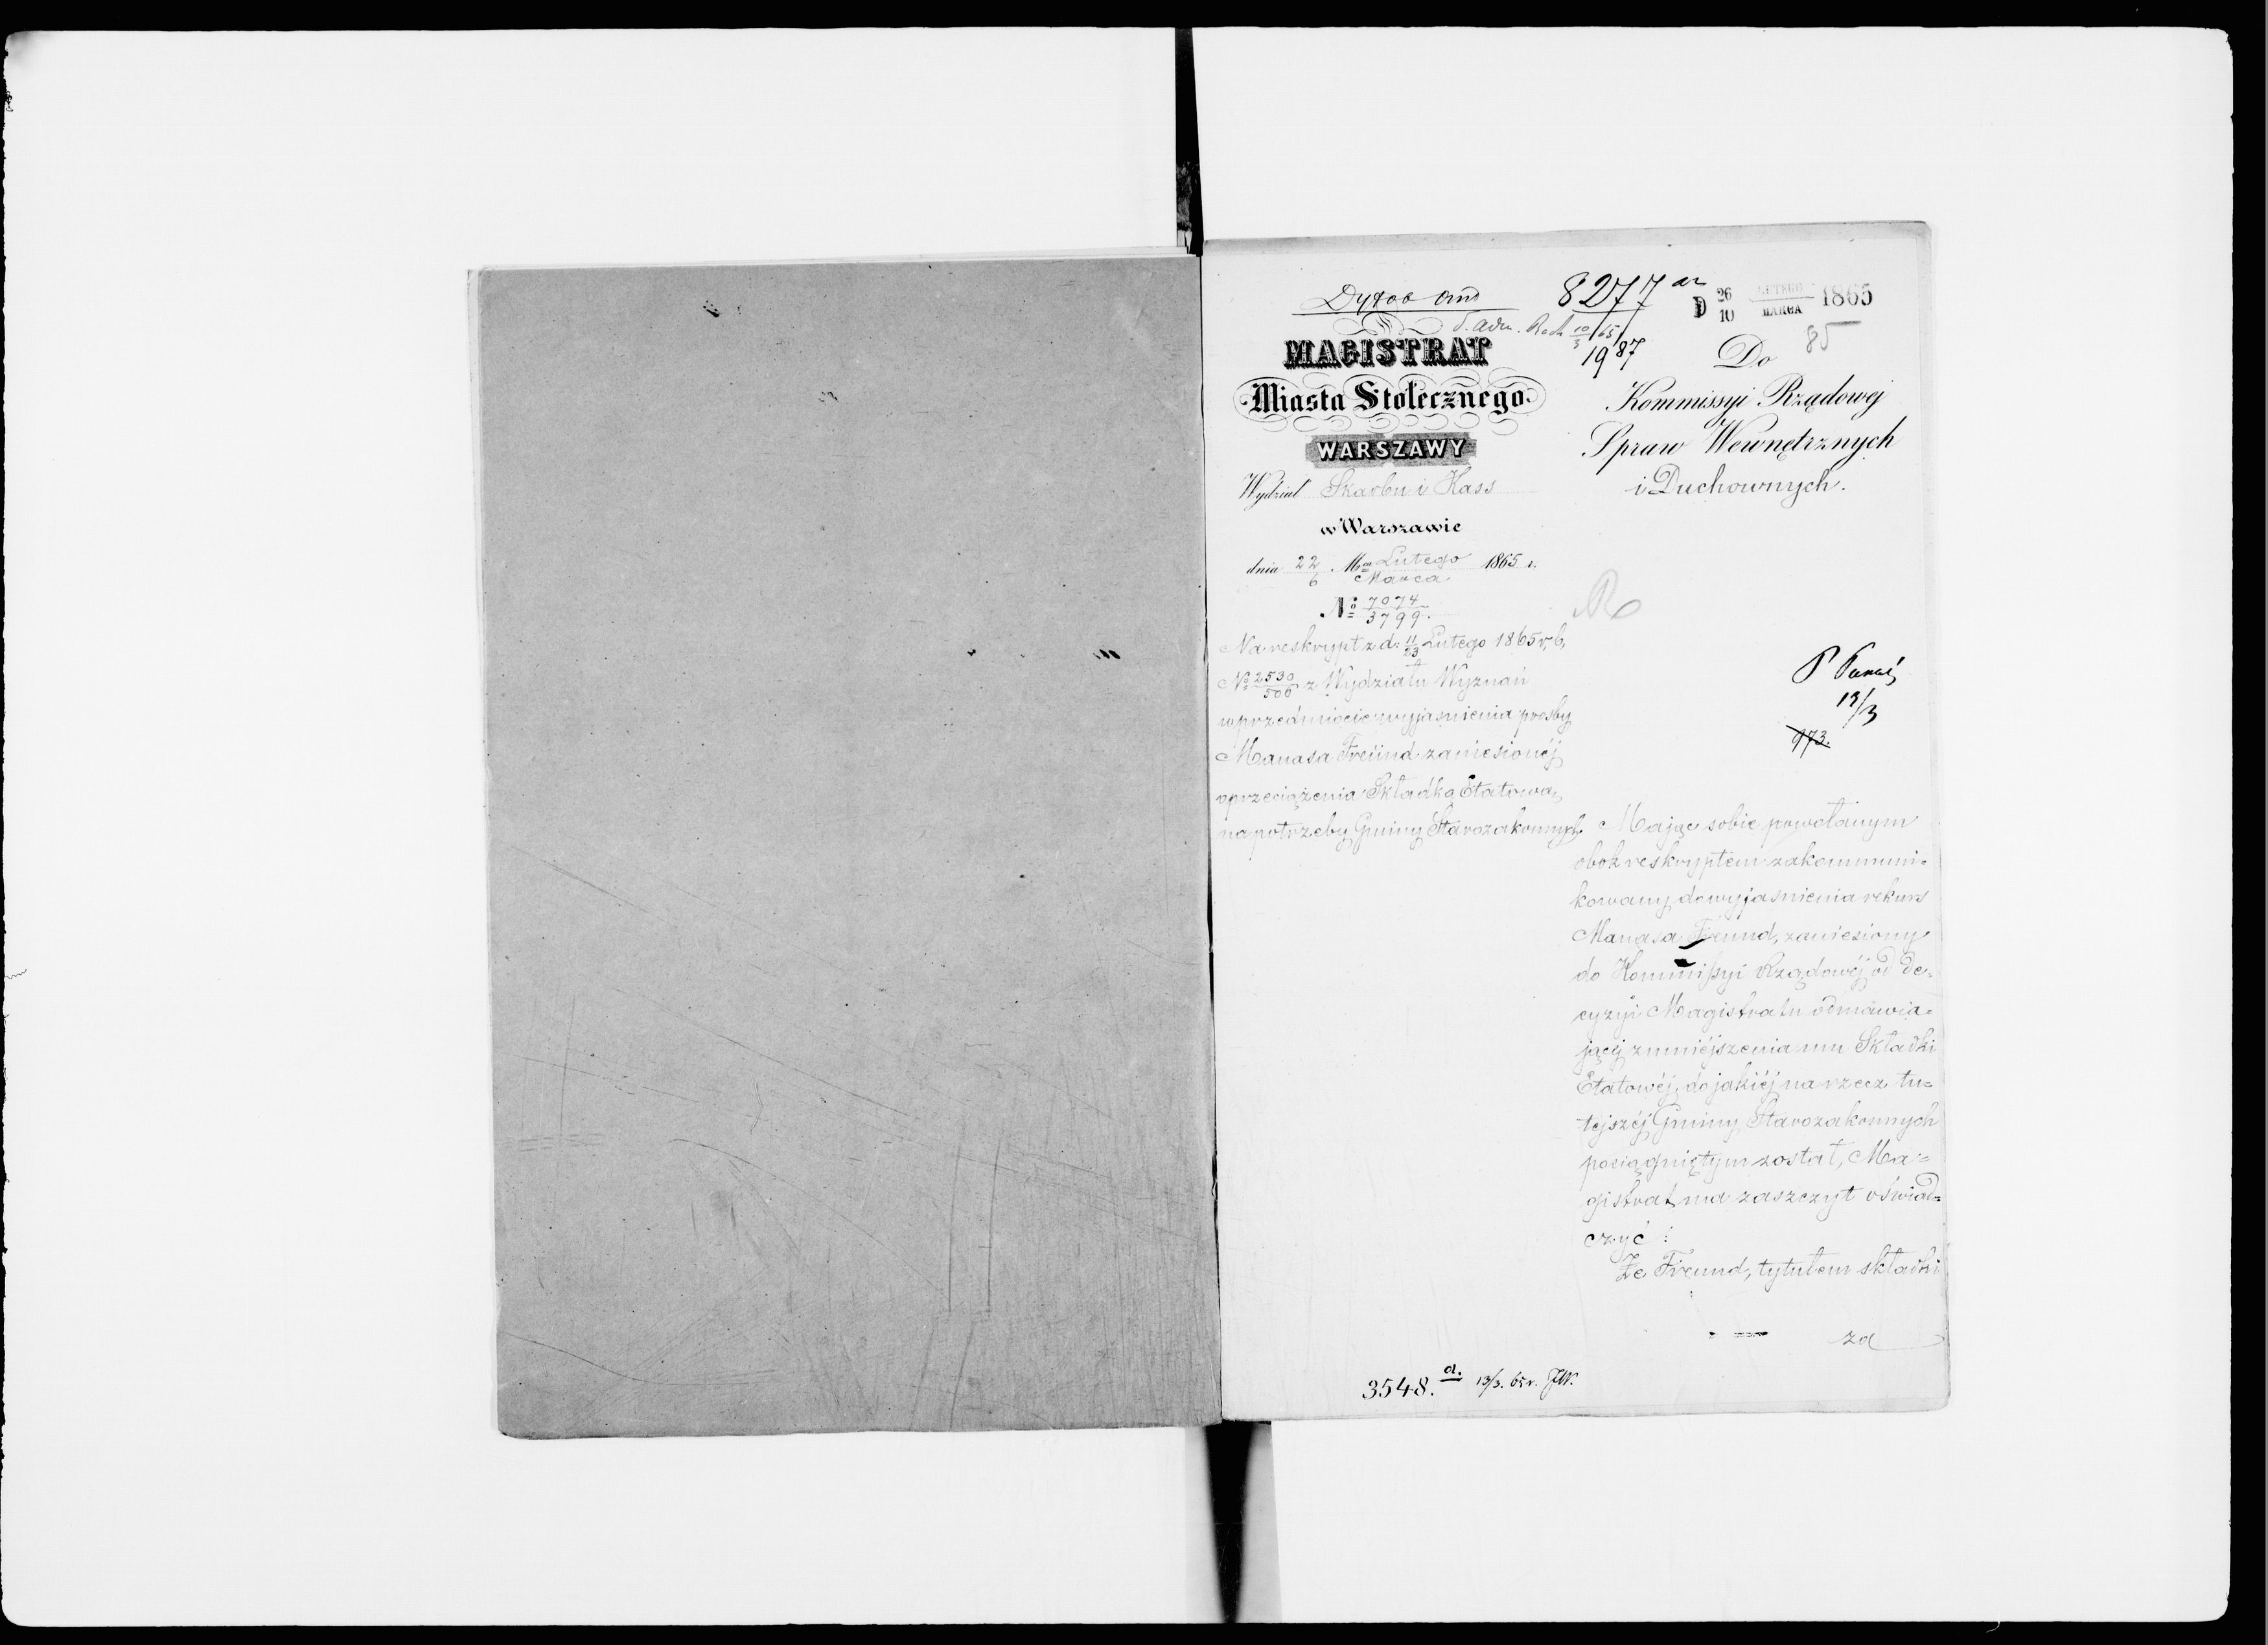 8277
D 26/10 LUTEGO/MARCA 1865
85
S. adm. Rach 10/3/65
1987
MAGISTRAT
Miasta Stołecznego
WARSZAWY
Wydział Skarbu i Kass
w Warszawie
dnia 22/6 Mca Lutego/Marca 1865 r.
No 7074/3799.
Na reskrypt z d. 11/23 Lutego 1865 r. b.
No 2530/506 z Wydziału Wyznań
w przedmiocie wyjasnienia prosby
Manasa Freünd zaniesionéj
o przeciążenia Składką Etatową
na potrzeby Gminy Starozakonnych
Do
Kommissyi Rządowej
Spraw Wewnętrznych
i Duchownych.
P
13/3
973.
Mając sobie powołanym
obok reskryptem zakommuni=
kowany do wyjasnienia rekurs
Manasa Freund, zaniesiony
do Kommissyi Rządowéj od de=
cyzyi Magistratu odmawia=
jącéj zmniéjszenia mu Składki
Etatowéj, do jakiéj na rzecz tu=
tejszéj Gminy Starozakonnych
pociągniętym został, Ma=
gistrat ma zaszczyt oświad=
czyć :
Że Freund, tytułem składki
za
3548. a. 13/3. 65 r. JW.